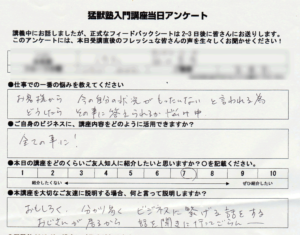 猛獣塾入門講座当日アンケート
講義中にお話しましたが、正式なフィードバックシートは2-3日後に皆さんにお送りします。
このアンケートには、本日受講直後のフレッシュな皆さんの声を生々しくお聞かせください!
●仕事での一番の悩みを教えてください
お客様から 今の自分の状況がもったいないと言われる為
どうしたら その事に 答えられるか
●ご自身のビジネスに、講座内容をどのように活用できますか?
全ての事に!
●本日の講座をどのくらいご友人知人に紹介したいと思いますか?○を記載ください。
1 2 3 4 5 6 7 8 9 10
紹介したくない ぜひ紹介したい
●本講座を大切なご友達に説明する場合、何と言って説明しますか?
おもしろく、分かり易く ビジネスに繋げる話をする
おじさんが居るから 話を聞きに行ってごらん